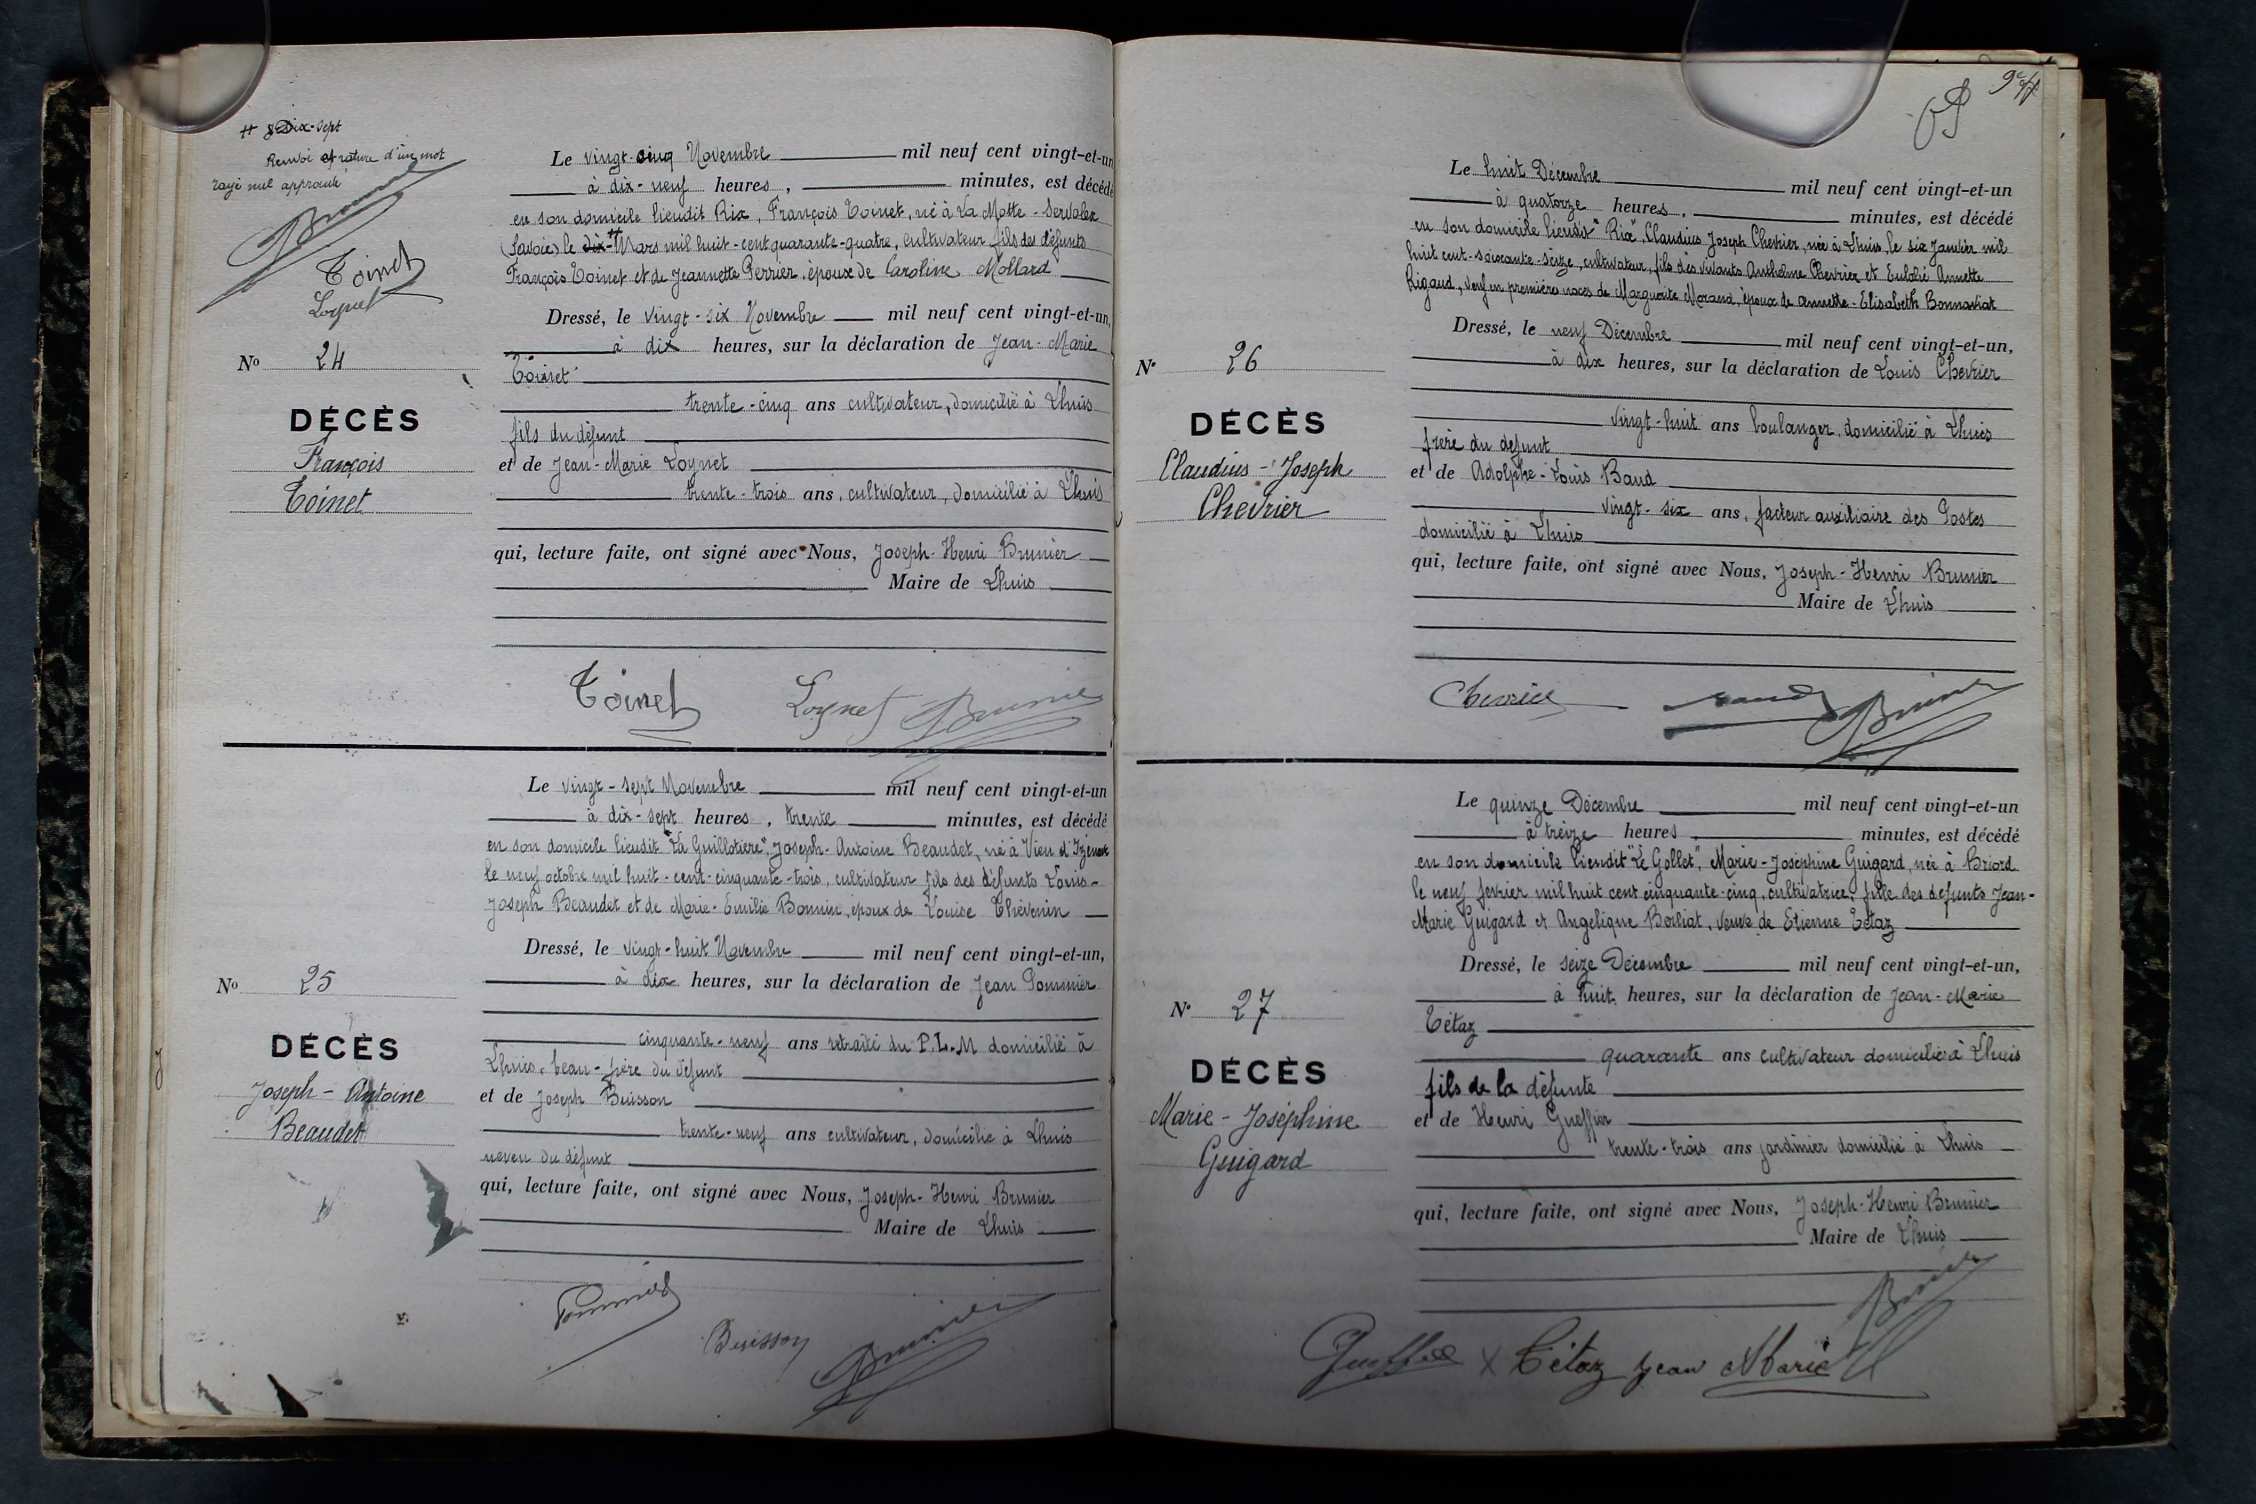 # Dix-sept
Renvoi et rature d'un mot
rayé nul approuvé
Brunier
Toinet
Loynet
No 24
DÉCÈS
François
Toinet
Le vingt-cinq Novembre mil neuf cent vingt-et-un
à dix-neuf heures, minutes, est décédé
en son domicile lieudit Rix, François Toinet, né à La Motte-Servolex
(Savoie) le dix # Mars mil huit-cent quarante-quatre, cultivateur fils des défunts
François Toinet et de Jeannette Perrier, époux de Caroline Mollard
Dressé, le vingt-six Novembre mil neuf cent vingt-et-un,
à dix heures, sur la déclaration de Jean-Marie
Toinet
trente-cinq ans cultivateur, domicilié à Lhuis
fils du défunt
et de Jean-Marie Loynet
trente-trois ans, cultivateur, domicilié à Lhuis
qui, lecture faite, ont signé avec Nous, Joseph-Henri Brunier
Maire de Lhuis
Toinet Loynet Brunier
No 25
DÉCÈS
Joseph-Antoine
Beaudet
Le vingt-sept Novembre mil neuf cent vingt-et-un
à dix-sept heures, trente minutes, est décédé
en son domicile lieudit "La Guillotière", Joseph-Antoine Beaudet, né à Vieu d'Izenave
le neuf octobre mil huit-cent-cinquante-trois, cultivateur fils des défunts Louis-
Joseph Beaudet et de Marie-Emilie Bonnin, époux de Louise Thévenin
Dressé, le vingt-huit Novembre mil neuf cent vingt-et-un,
à dix heures, sur la déclaration de Jean Pommier
cinquante-neuf ans retraité du P.L.M domicilié à
Lhuis, beau-frère du défunt
et de Joseph Buisson
trente-neuf ans cultivateur, domicilié à Lhuis
neveu du défunt
qui, lecture faite, ont signé avec Nous, Joseph-Henri Brunier
Maire de Lhuis
Pommier Buisson Brunier
No 26
DÉCÈS
Claudius-Joseph
Chevrier
Le huit Décembre mil neuf cent vingt-et-un
à quatorze heures, minutes, est décédé
en son domicile lieudit "Rix", Claudius Joseph Chevrier, née à Lhuis, le six Janvier mil
huit cent-soixante-seize, cultivateur, fils des vivants Anthelme Chevrier et Eulalie Annette
Rigaud, veuf en premières noces de Marguerite Morand, époux de Annette-Elisabeth Bonnardat
Dressé, le neuf Décembre mil neuf cent vingt-et-un,
à dix heures, sur la déclaration de Louis Chevrier
vingt-huit ans boulanger, domicilié à Lhuis
frère du défunt
et de Adolphe-Louis Baud
vingt-six ans, facteur auxiliaire des Postes
domicilié à Lhuis
qui, lecture faite, ont signé avec Nous, Joseph-Henri Brunier
Maire de Lhuis
Chevrier Baud Brunier
No 27
DÉCÈS
Marie-Joséphine
Guigard
Le quinze Décembre mil neuf cent vingt-et-un
à treize heures, minutes, est décédé
en son domicile lieudit "Le Gollet", Marie-Joséphine Guigard, née à Briord
le neuf fevrier mil huit cent cinquante-cinq, cultivatrice, fille des défunts Jean-
Marie Guigard et Angelique Borliat, veuve de Etienne Tétaz
Dressé, le seize Décembre mil neuf cent vingt-et-un,
à huit heures, sur la déclaration de Jean-Marie
Tétaz
quarante ans cultivateur domicilié à Lhuis
fils de la défunte
et de Henri Gueffier
trente-trois ans jardinier domicilié à Lhuis
qui, lecture faite, ont signé avec Nous, Joseph-Henri Brunier
Maire de Lhuis
Brunier
Gueffier X Tétaz Jean Marie